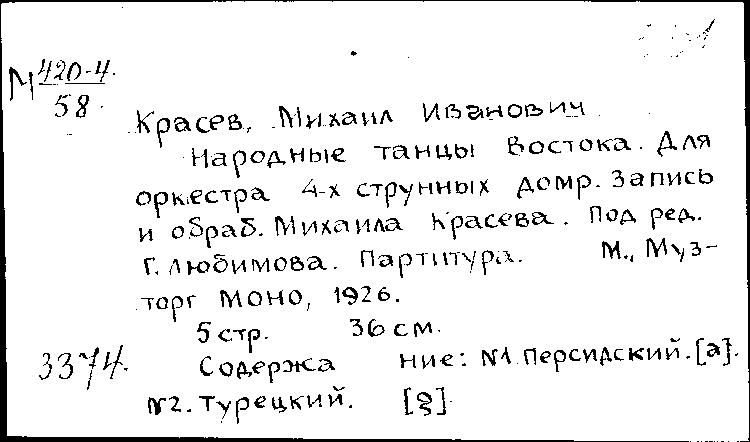 М 420-4.
58.
Красев, Михаил Иванович
Народные танцы Востока. Для
оркестра 4-х струнных домр. Запись
и обраб. Михаила Красева. Под ред.
Г. Любимова. Партитура. М., Муз-
торг МОНО, 1926.
5 стр. 36 см.
3374. Содержа ние: №1. Персидский. [а].
№2. Турецкий.